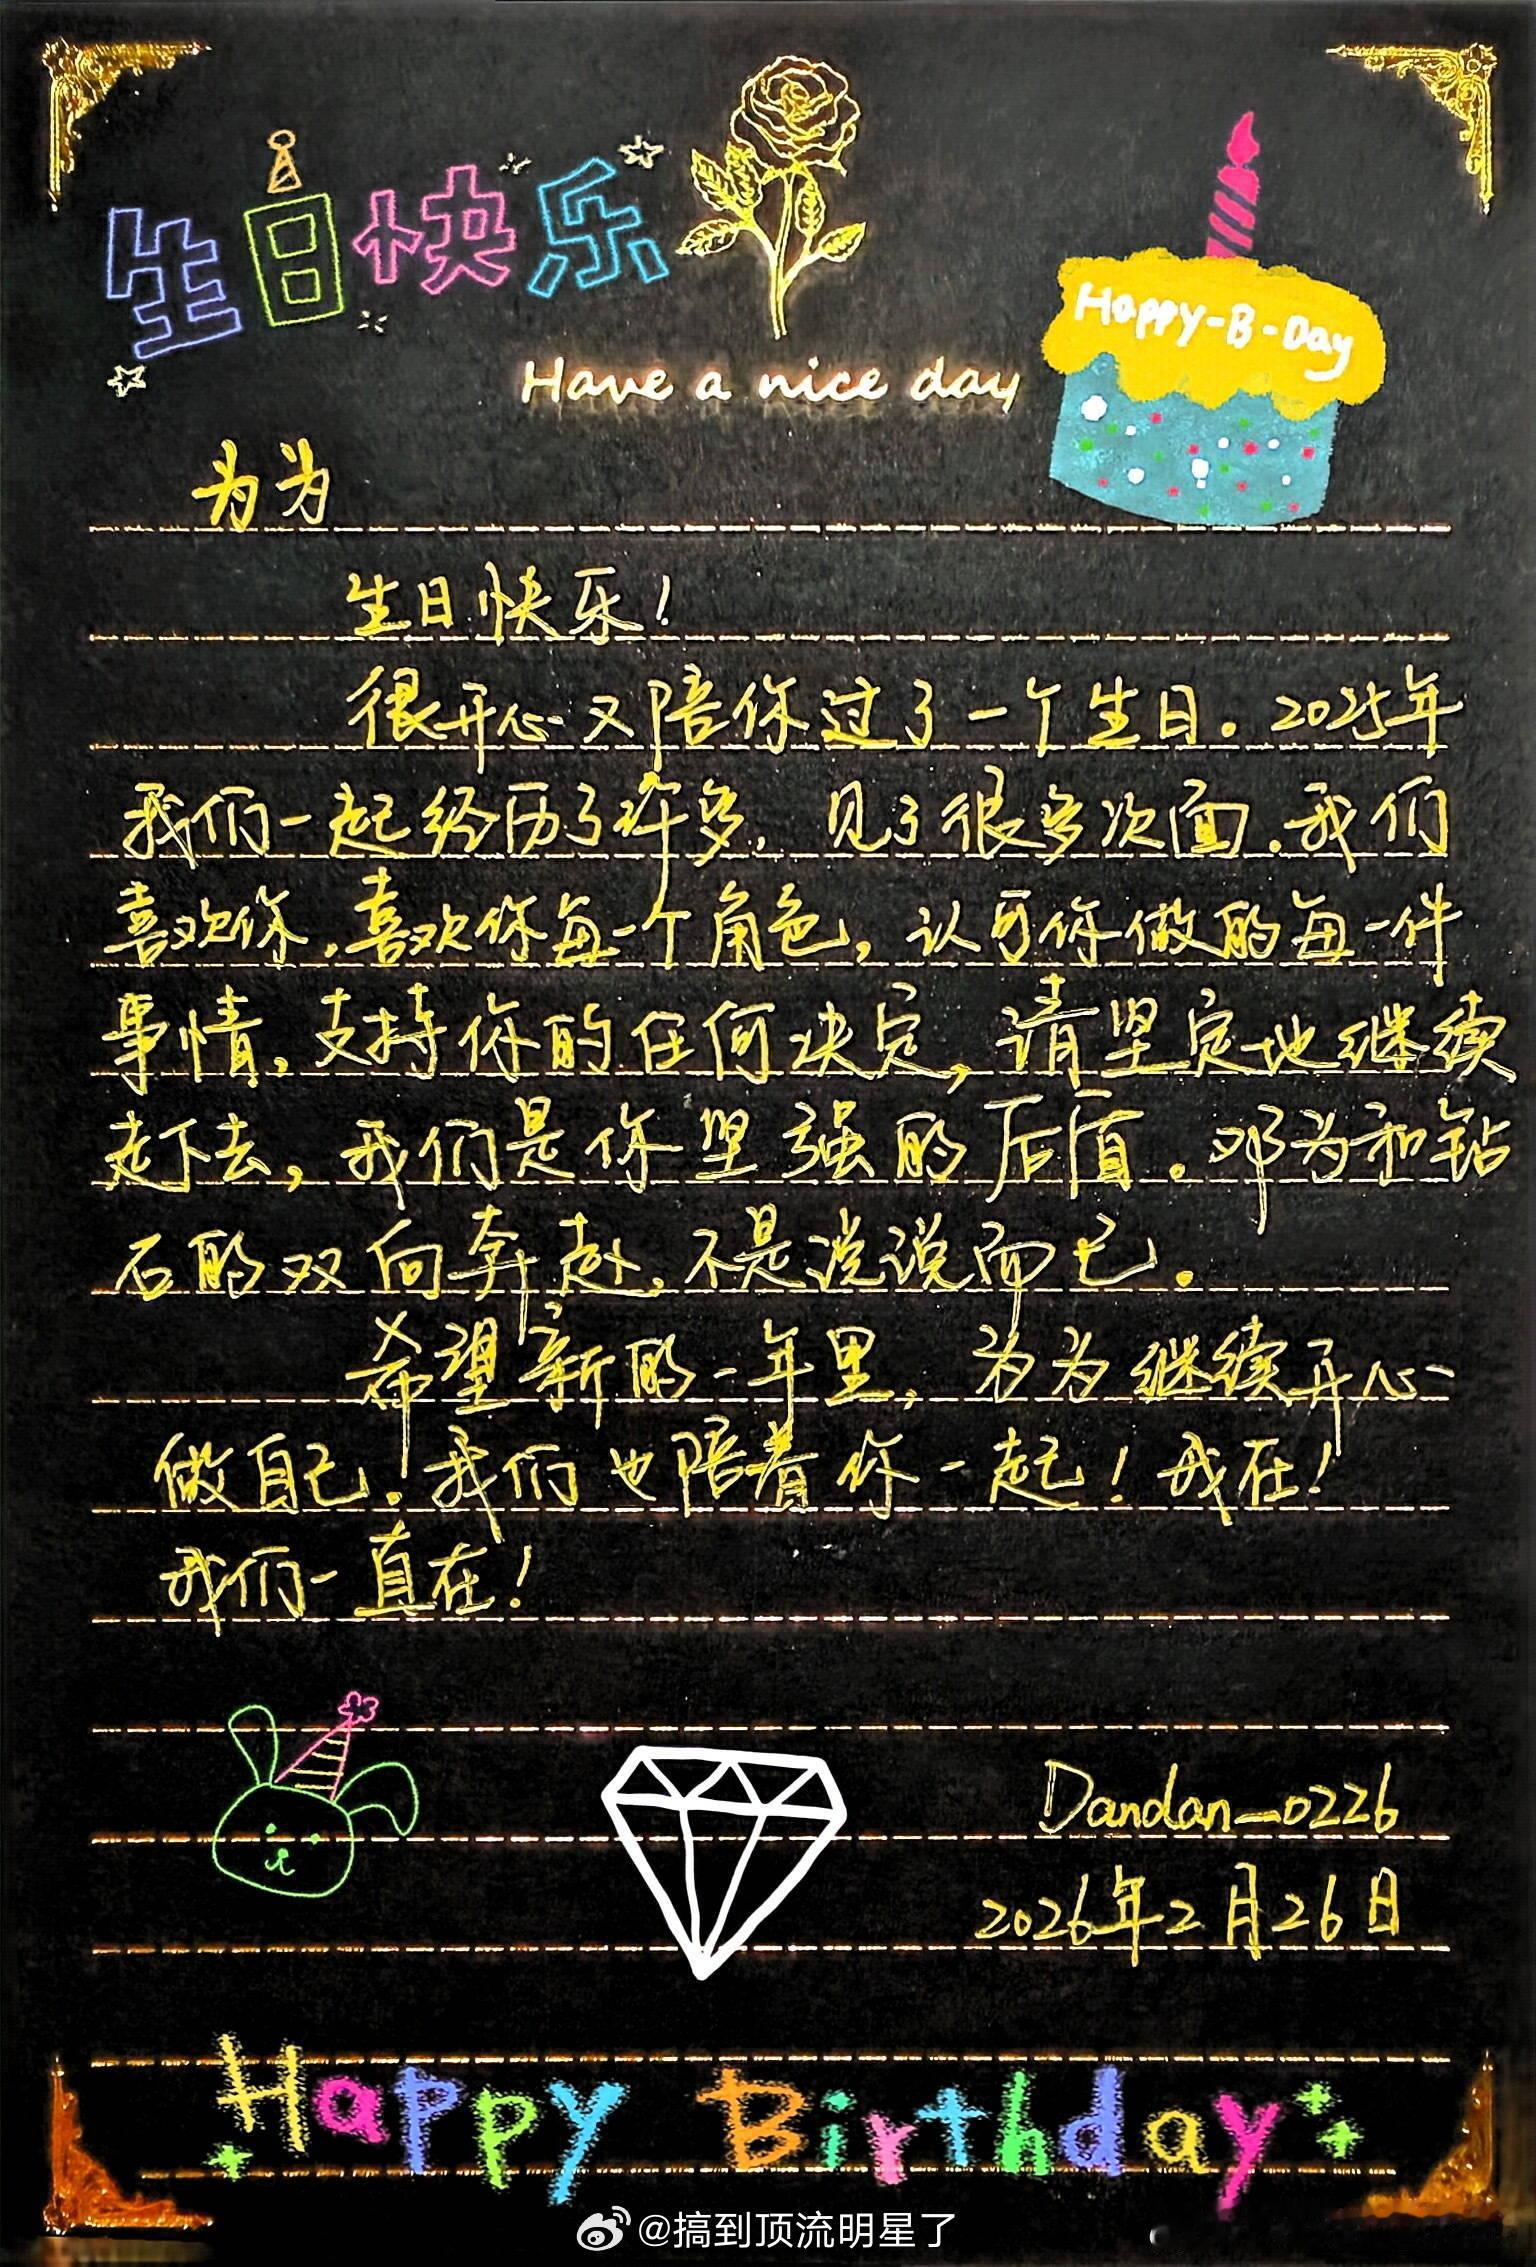 生日快乐
Happy-B-Day
Have a nice day
为为
生日快乐!
很开心又陪你过了一个生日。2025年
我们一起经历了许多,见了很多次面。我们
喜欢你,喜欢你每一个角色,认可你做的每一件
事情,支持你的任何决定,请坚定地继续
走下去,我们是你坚强的后盾。邓为和钻
石的双向奔赴,不是说说而已。
希望新的一年里,为为继续开心
做自己。我们也陪着你一起!我在!
我们一直在!
Dandan_0226
2026年2月26日
Happy Birthday
@搞到顶流明星了